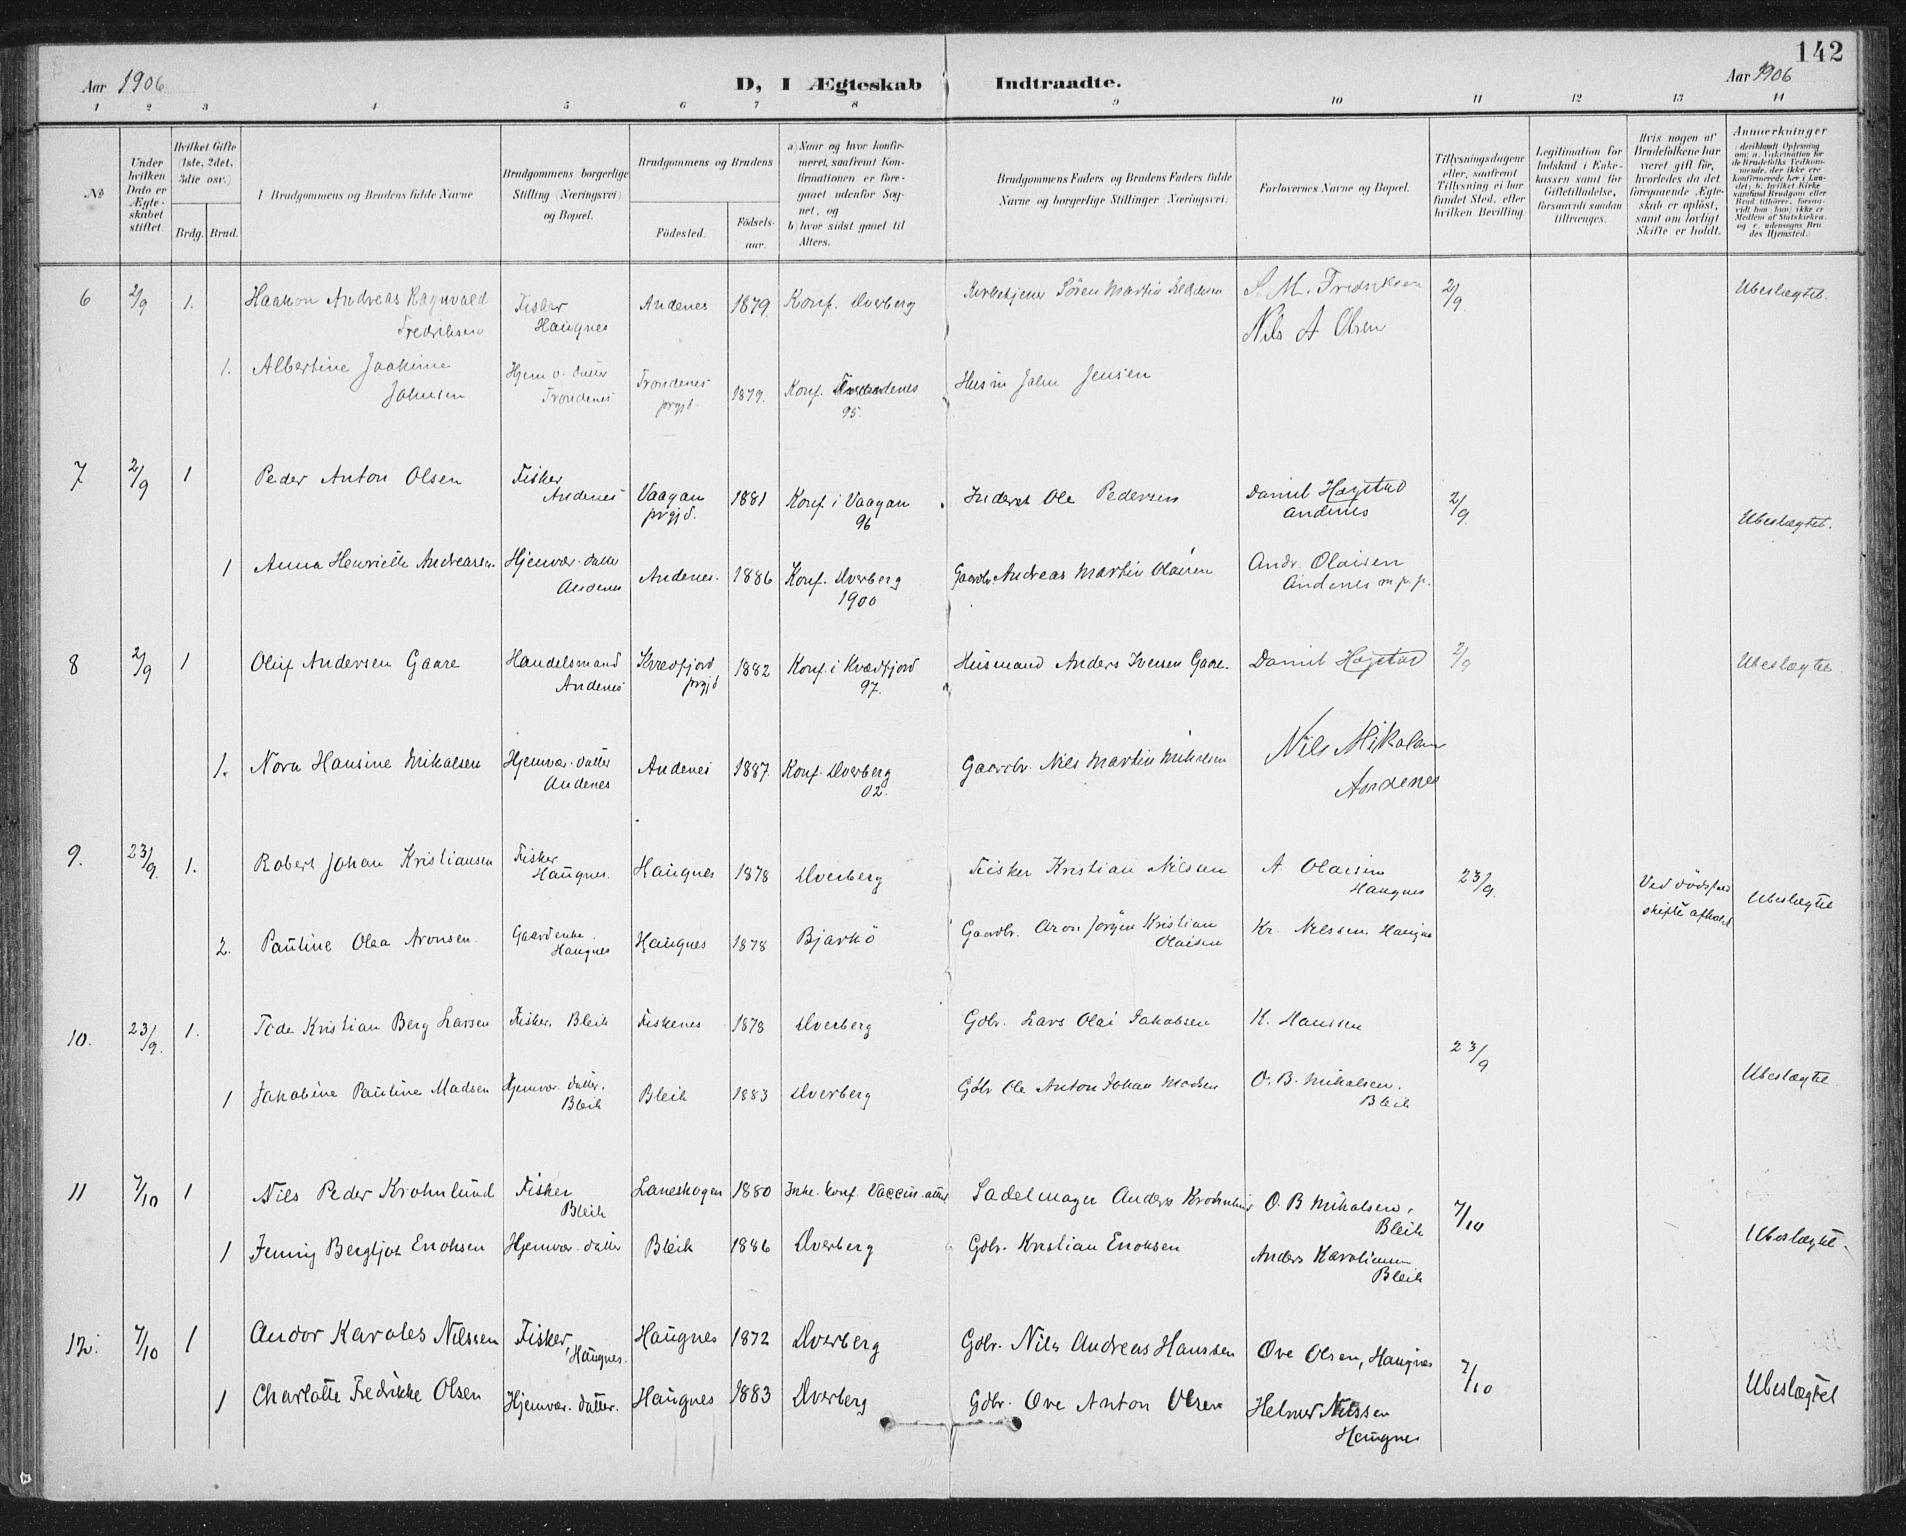 142
Aar 1906
D, I Ægteskab Indtraadte.
Aar 1906
1 2 3 4 5 6 7 8 9 10 11 12 13 14
No
Under hvilken Dato er Ægteskabet stiftet.
Hvilket Gifte (1ste, 2det, 3die osv.)
Brdg. Brud.
Brudgommens og Brudens fulde Navne
Brudgommens borgerlige Stilling (Næringsvei) og Bopæl.
Brudgommens og Brudens
Födested. Födselsaar.
a) Naar og hvor konfirmeret, saafremt Konfirmationen er foregaaet udenfor Sognet, og
b) hvor sidst gaaet til Alters.
Brudgommens Faders og Brudens Faders fulde Navne og borgerlige Stillinger (Næringsvei)
Forlovernes Navne og Bopæl.
Tillysningsdagene eller, saafremt Tillysning ei har fundet Sted, efter hvilken Bevilling
Legitimation for Indskud i Enkekassen samt for Giftetilladelse, forsaavidt saadan tiltrænges.
Hvis nogen af Brudefolkene har været gift för, hvorledes da det foregaaende Ægteskab er oplöst, samt om lovligt Skifte er holdt.
Anmærkninger
6 2/9 1. Haakon Andreas Ragnvald Fredriksen Fisker Haugnes Andenes 1879. Konf. Dverberg Kirketjener Sören Martin S. M. Fredriksen 2/9 Ubeslægtet.
Nils A Olsen
1. Albertine Joakime Johnsen Hjemv. datter Trondenes Trondenes prgjd. 1879. Konf. Trondenes 95. Husm John Jensen
7 2/9 1 Peder Anton Olsen Fisker Andenes Vaagan prgjd. 1881 Konf. i Vaagan 96 Inderst Ole Pedersen Daniel Hagstad Andenes 2/9 Ubeslægtet.
1 Anna Henriette Andreassen. Hjemvær. datter Andenes Andenes. 1886 Konf. Dverberg 1900 Gaardbr. Andreas Martin Olaisen Andr. Olaisen Andenes m.p.p.
8 2/9 1 Oluf Andersen Gaare Handelsmand Andenes Kvædfjord prgjd 1882 Konf. i Kvædfjord 97. Husmand Anders Iversen Gaare. Daniel Hagstad 2/9 Ubeslægtet.
1. Nora Hansine Mikalsen Hjemvær. datter Andenes Andenes 1887. Konf. Dverberg 02. Gaardbr. Nils Martin Mikalsen Nils Mikalsen Andenes
9. 23/9. 1. Robert Johan Kristiansen Fisker Haugnes. Haugnes 1878 Dverberg Fisker Kristian Nilsen A Olaisen Haugnes 23/9. Ved dödsfald skifte afholdt Ubeslægtet
2. Pauline Olea Aronsen. Gaardenke. Haugnes Haugnes 1878 Bjarkö Gaardbr. Aron Jörgen Kristian Olaisen Kr. Nilssen Haugnes
10. 23/9. 1. Tode Kristian Berg Larsen Fisker, Bleik Fiskenes 1878 Dverberg Gdbr. Lars Olai Jakobsen K. Hanssen 23/9 Ubeslægtet.
1 Jakobine Pauline Madsen Hjemvær. datter. Bleik Bleik 1883 Dverberg Gdbr Ole Anton Johan Madsen O. B. Mikalsen. Bleik
11 7/10 1 Nils Peder Krohnlund Fisker Bleik Laneskogen 1880 Ikke konf. Vaccin. attest Sadelmager Anders Krohnlund O. B Mikalsen, Bleik 7/10 Ubeslægtet.
1 Jenny Bergljot Enoksen Hjemvær. datter Bleik 1886 Dverberg Gdbr. Kristian Enoksen Anders Karoliussen Bleik
12. 7/10 1 Andor Karoles Nilssen Fisker, Haugnes. Haugnes 1872 Dverberg Gdbr. Nils Andreas Hanssen Ove Olsen, Haugnes 7/10 Ubeslægtet
1 Charlotte Fredrikke Olsen Hjemvær. datter. Haugnes 1883 Dverberg Gdbr. Ove Anton Olsen Helmer Nilssen Haugnes